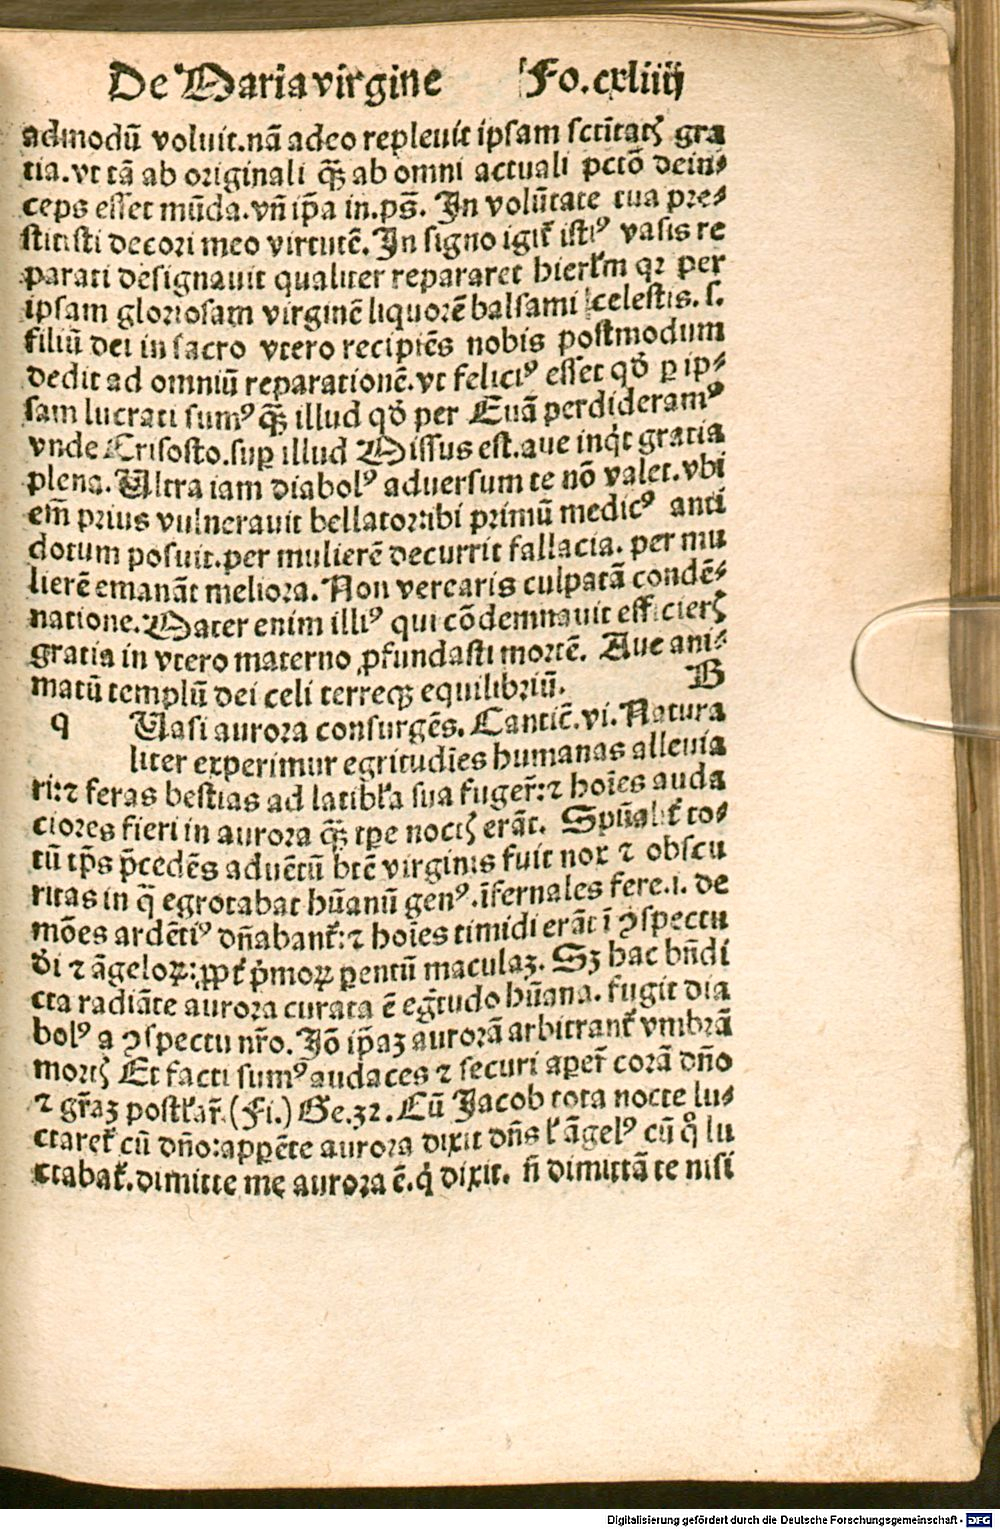 De Maria virgine Fo.cxliiij
admodū voluit.nā adeo repleuit ipsam sctītatꝭ gra
tia.vt tā ab originali qꝫ̄ ab omni actuali pctō dein⸗
ceps esset mūda.vñ ip̄a in.ps̄. In volūtate tua pre⸗
stitisti decori meo virtutē. In signo igit᷑ istiꝰ vasis re
parati designauit qualiter repararet hierl̄m qꝛ per
ipsam gloriosam virginē liquorē balsami celestis.s.
filiū dei in sacro vtero recipiēs nobis postmodum
dedit ad omniū reparationē.vt feliciꝰ esset qḋ ꝑ ip⸗
sam lucrati sumꝰ qꝫ̄ illud qḋ per Euā perdideramꝰ
vnde Crisosto.suꝑ illud Missus est.aue inq̇t gratia
plena. Ultra iam diabolꝰ aduersum te nō valet.vbi
em̄ prius vulnerauit bellator:ibi primū medicꝰ anti
dotum posuit.per mulierē decurrit fallacia. per mu
lierē emanāt meliora. Non verearis culpatā condē⸗
natione. Mater enim illiꝰ qui cōdemnauit efficierꝭ
gratia in vtero materno ꝓfundasti mortē. Aue ani⸗
matū templū dei celi terreqꝫ equilibriū. B
q Uasi aurora consurgēs. Canticē.vi. Natura
liter experimur egritudīes humanas alleuia
ri:⁊ feras bestias ad latibl̓a sua fuger̄:⁊ hoīes auda
ciores fieri in aurora qꝫ̄ tꝑe noctꝭ erāt. Spūalit᷑ to⸗
tū tp̄s p̄cedēs aduētū btē virginis fuit nox ⁊ obscu
ritas in q̄ egrotabat hūanū genꝰ.īfernales fere.i. de
mōes ardētiꝰ dñabant᷑:⁊ hoīes timidi erāt ī ꝯspectu
ḋi ⁊ āgeloꝝ:ꝓpt᷑ p̓moꝝ ꝑentū maculaꝫ. Sꝫ hac bñdi
cta radiāte aurora curata ē eg̓tudo hūana. fugit dia
bolꝰ a ꝯspectu nr̄o. Iō ip̄aꝫ aurorā arbitrant᷑ vmbrā
mortꝭ Et facti sumꝰ audaces ⁊ securi aper̄ corā dño
⁊ gr̄aꝫ postl̓ar̄.(Fi.) Ge.32. Cū Jacob tota nocte lu⸗
ctaret᷑ cū dño:apꝑēte aurora dixit dñs l̓ āgelꝰ cū q̊ lu
ctabat᷑.dimitte me aurora ē.q̇ dixit. ñ dimittā te nisi
Digitalisierung gefördert durch die Deutsche Forschungsgemeinschaft - DFG